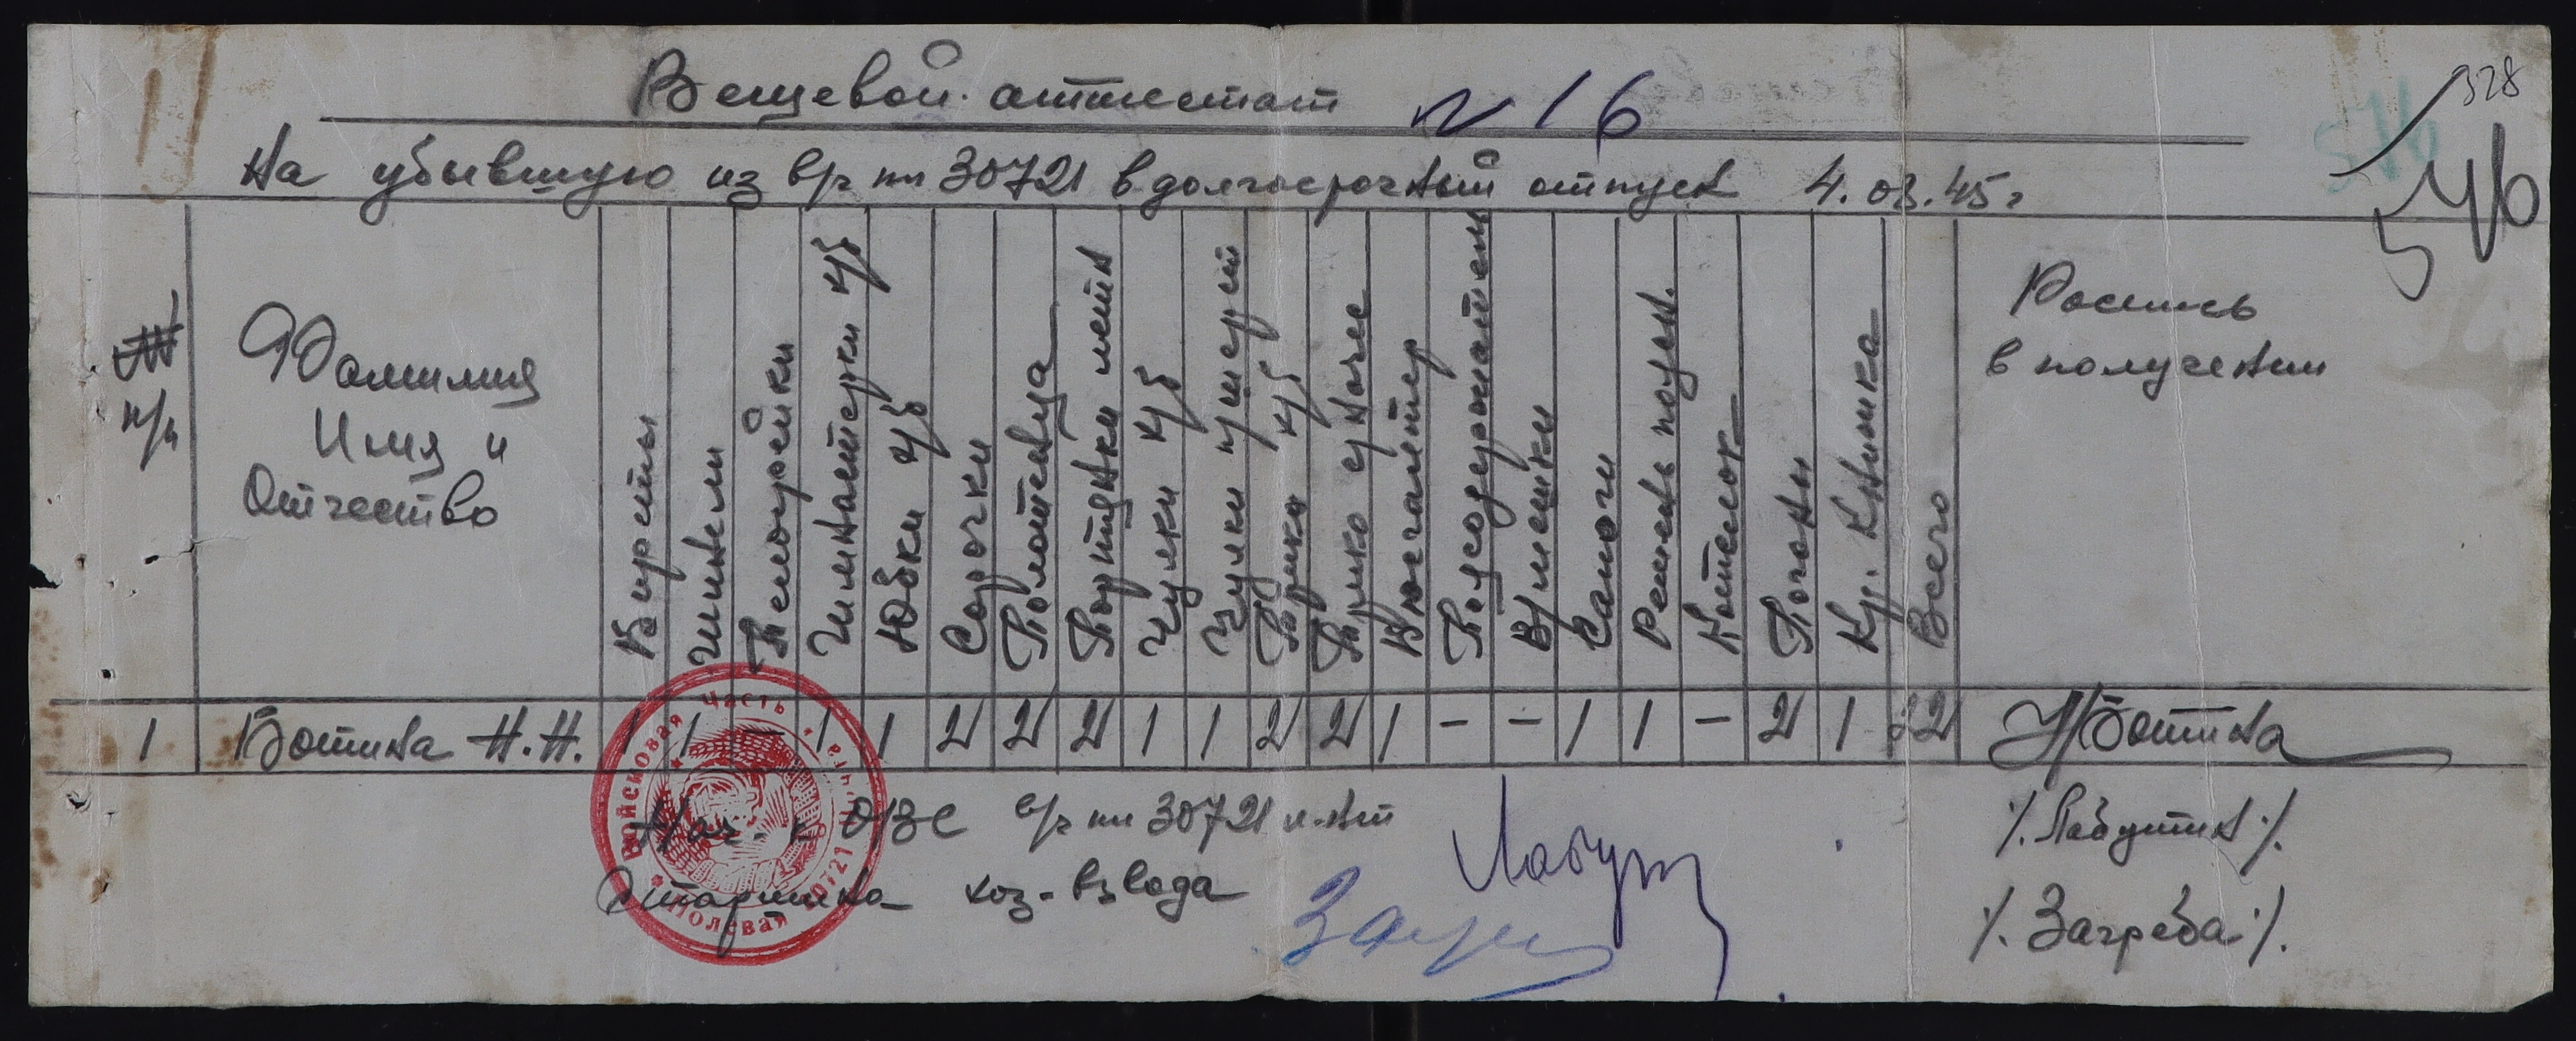 Вещевой аттестат N 16
328
546
На убывшую из в/ч пп 30721 в долгосрочный отпуск 4.03.45г
№№ п/п
Фамилия
Имя и
Отчество
Береты
Шинели
Телогрейки
Гимнастерки х/б
Юбки х/б
Сорочки
Полотенца
Портянки летн
Чулки х/б
Чулки п/шерст
Трико х/б
Бюстгалтер
Поясодержатель
Сапоги
Ремень поясн.
Котелок
Погоны
Кр. Книжка
Всего
Роспись
в получении
1 Ботина Н.Н. 1 1 — 1 1 2 2 2 1 1 2 2 1 — — 1 1 — 2 1 22 Н Ботина
Нач-к ОВС в/ч пп 30721 л-нт /Лабутин/.
Старшина хоз-взвода /Загреба/.
Войсковая часть
Полевая почта
30721